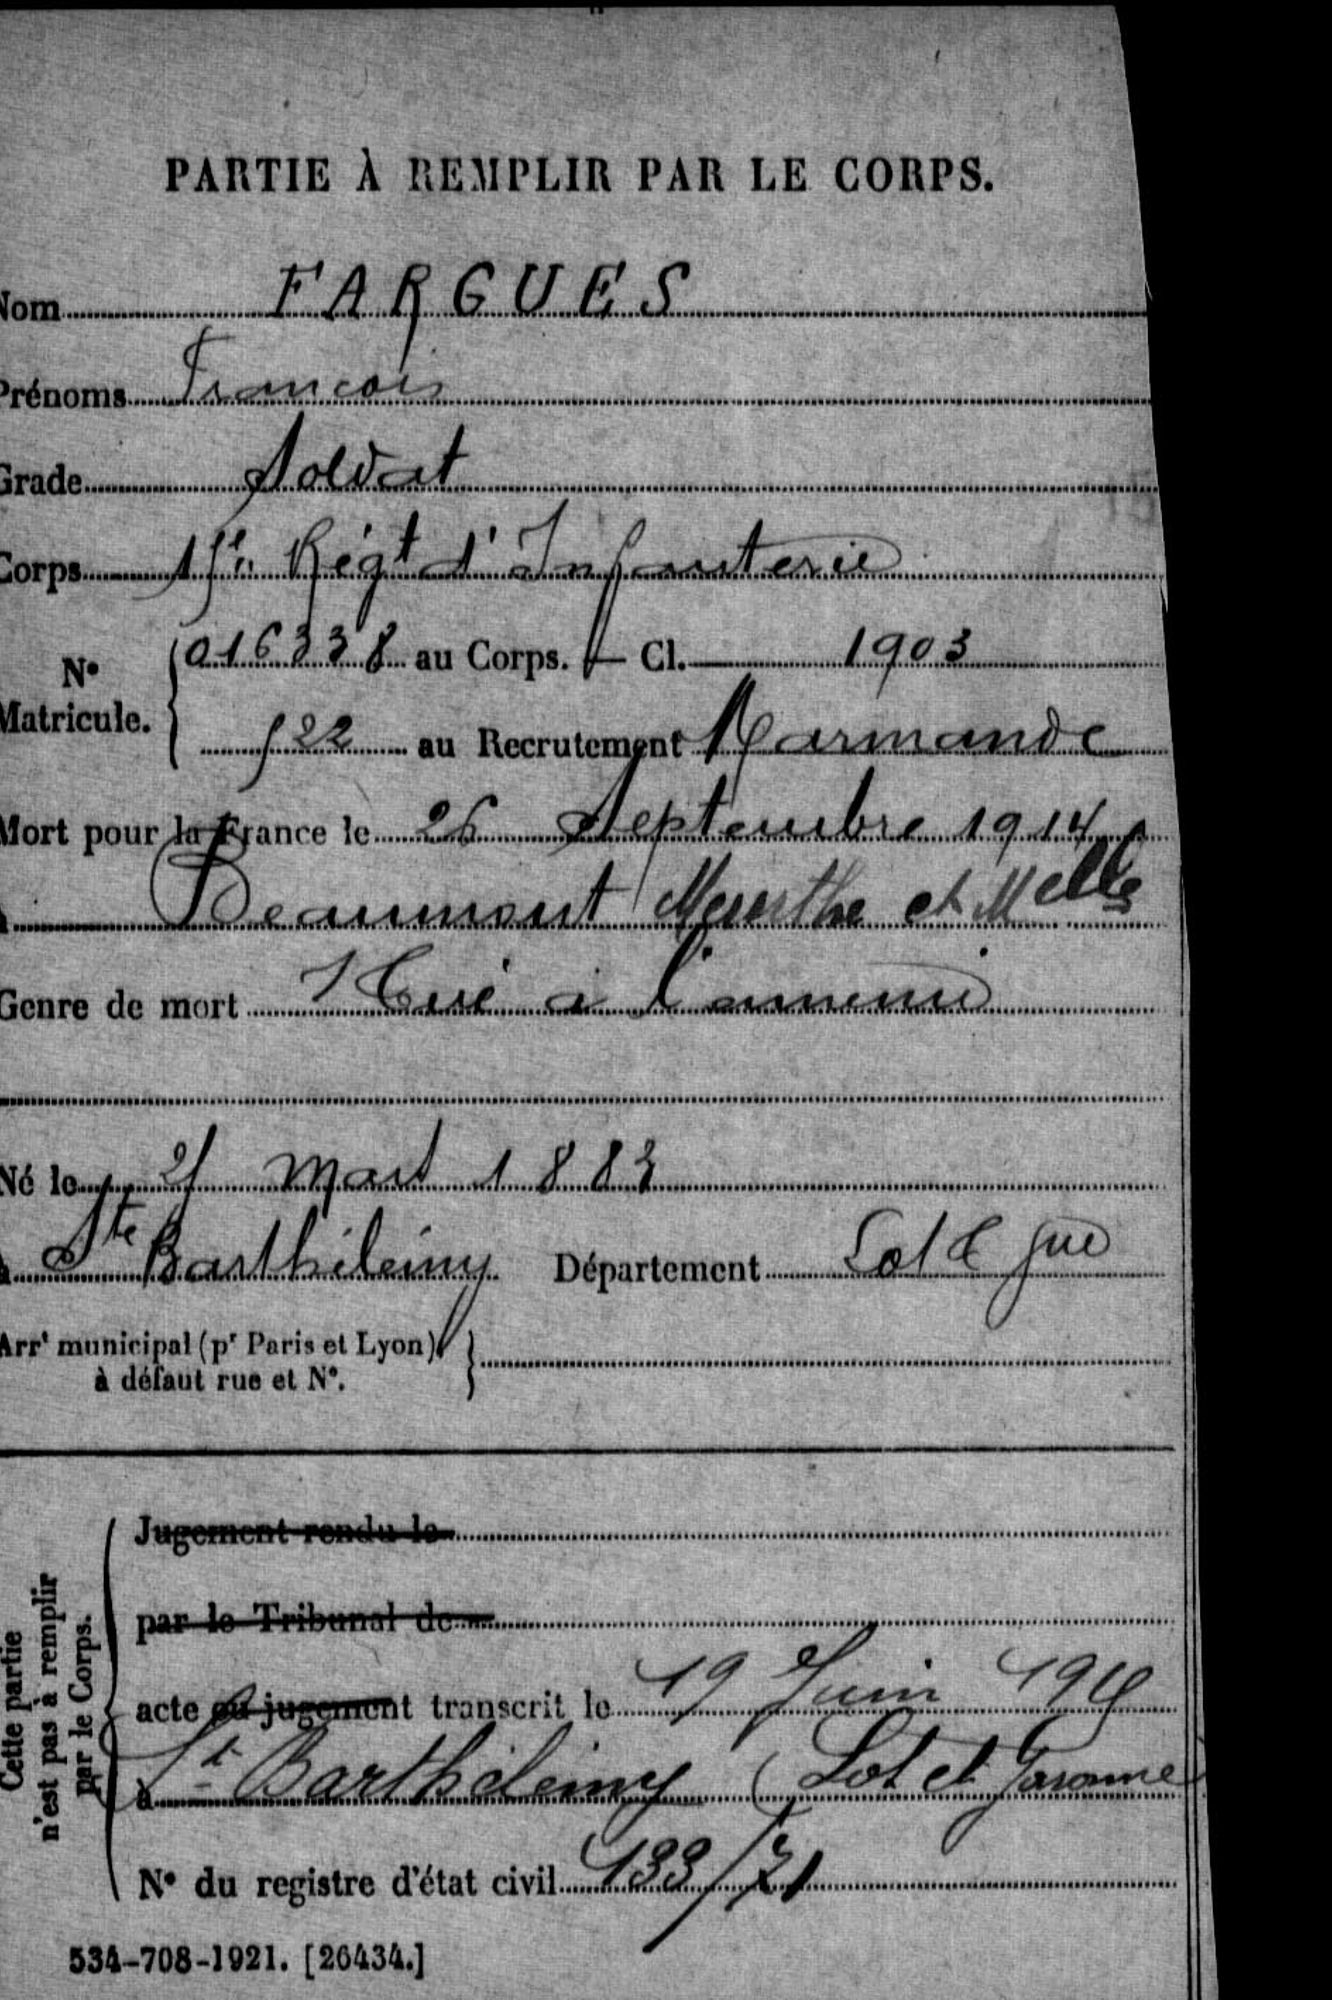 PARTIE À REMPLIR PAR LE CORPS.
Nom FARGUES
Prénoms Francois
Grade Soldat
Corps 15e Régt d'Infanterie
N° Matricule. 016338 au Corps. — Cl. 1903
522 au Recrutement Marmande
Mort pour la France le 26 Septembre 1914
à Beaumont Meurthe et Melle
Genre de mort Tué à l'ennemi
Né le 25 Mars 1883
à Ste Barthélémy Département Lot & Gne
Arrt municipal (pr Paris et Lyon),
à défaut rue et N°.
Cette partie
n'est pas à remplir
par le Corps.
Jugement rendu le
par le Tribunal de
acte ou jugement transcrit le 19 Juin
à St Barthélemy (Lot et Garonne
N° du registre d'état civil 133/71
534-708-1921. [26434.]